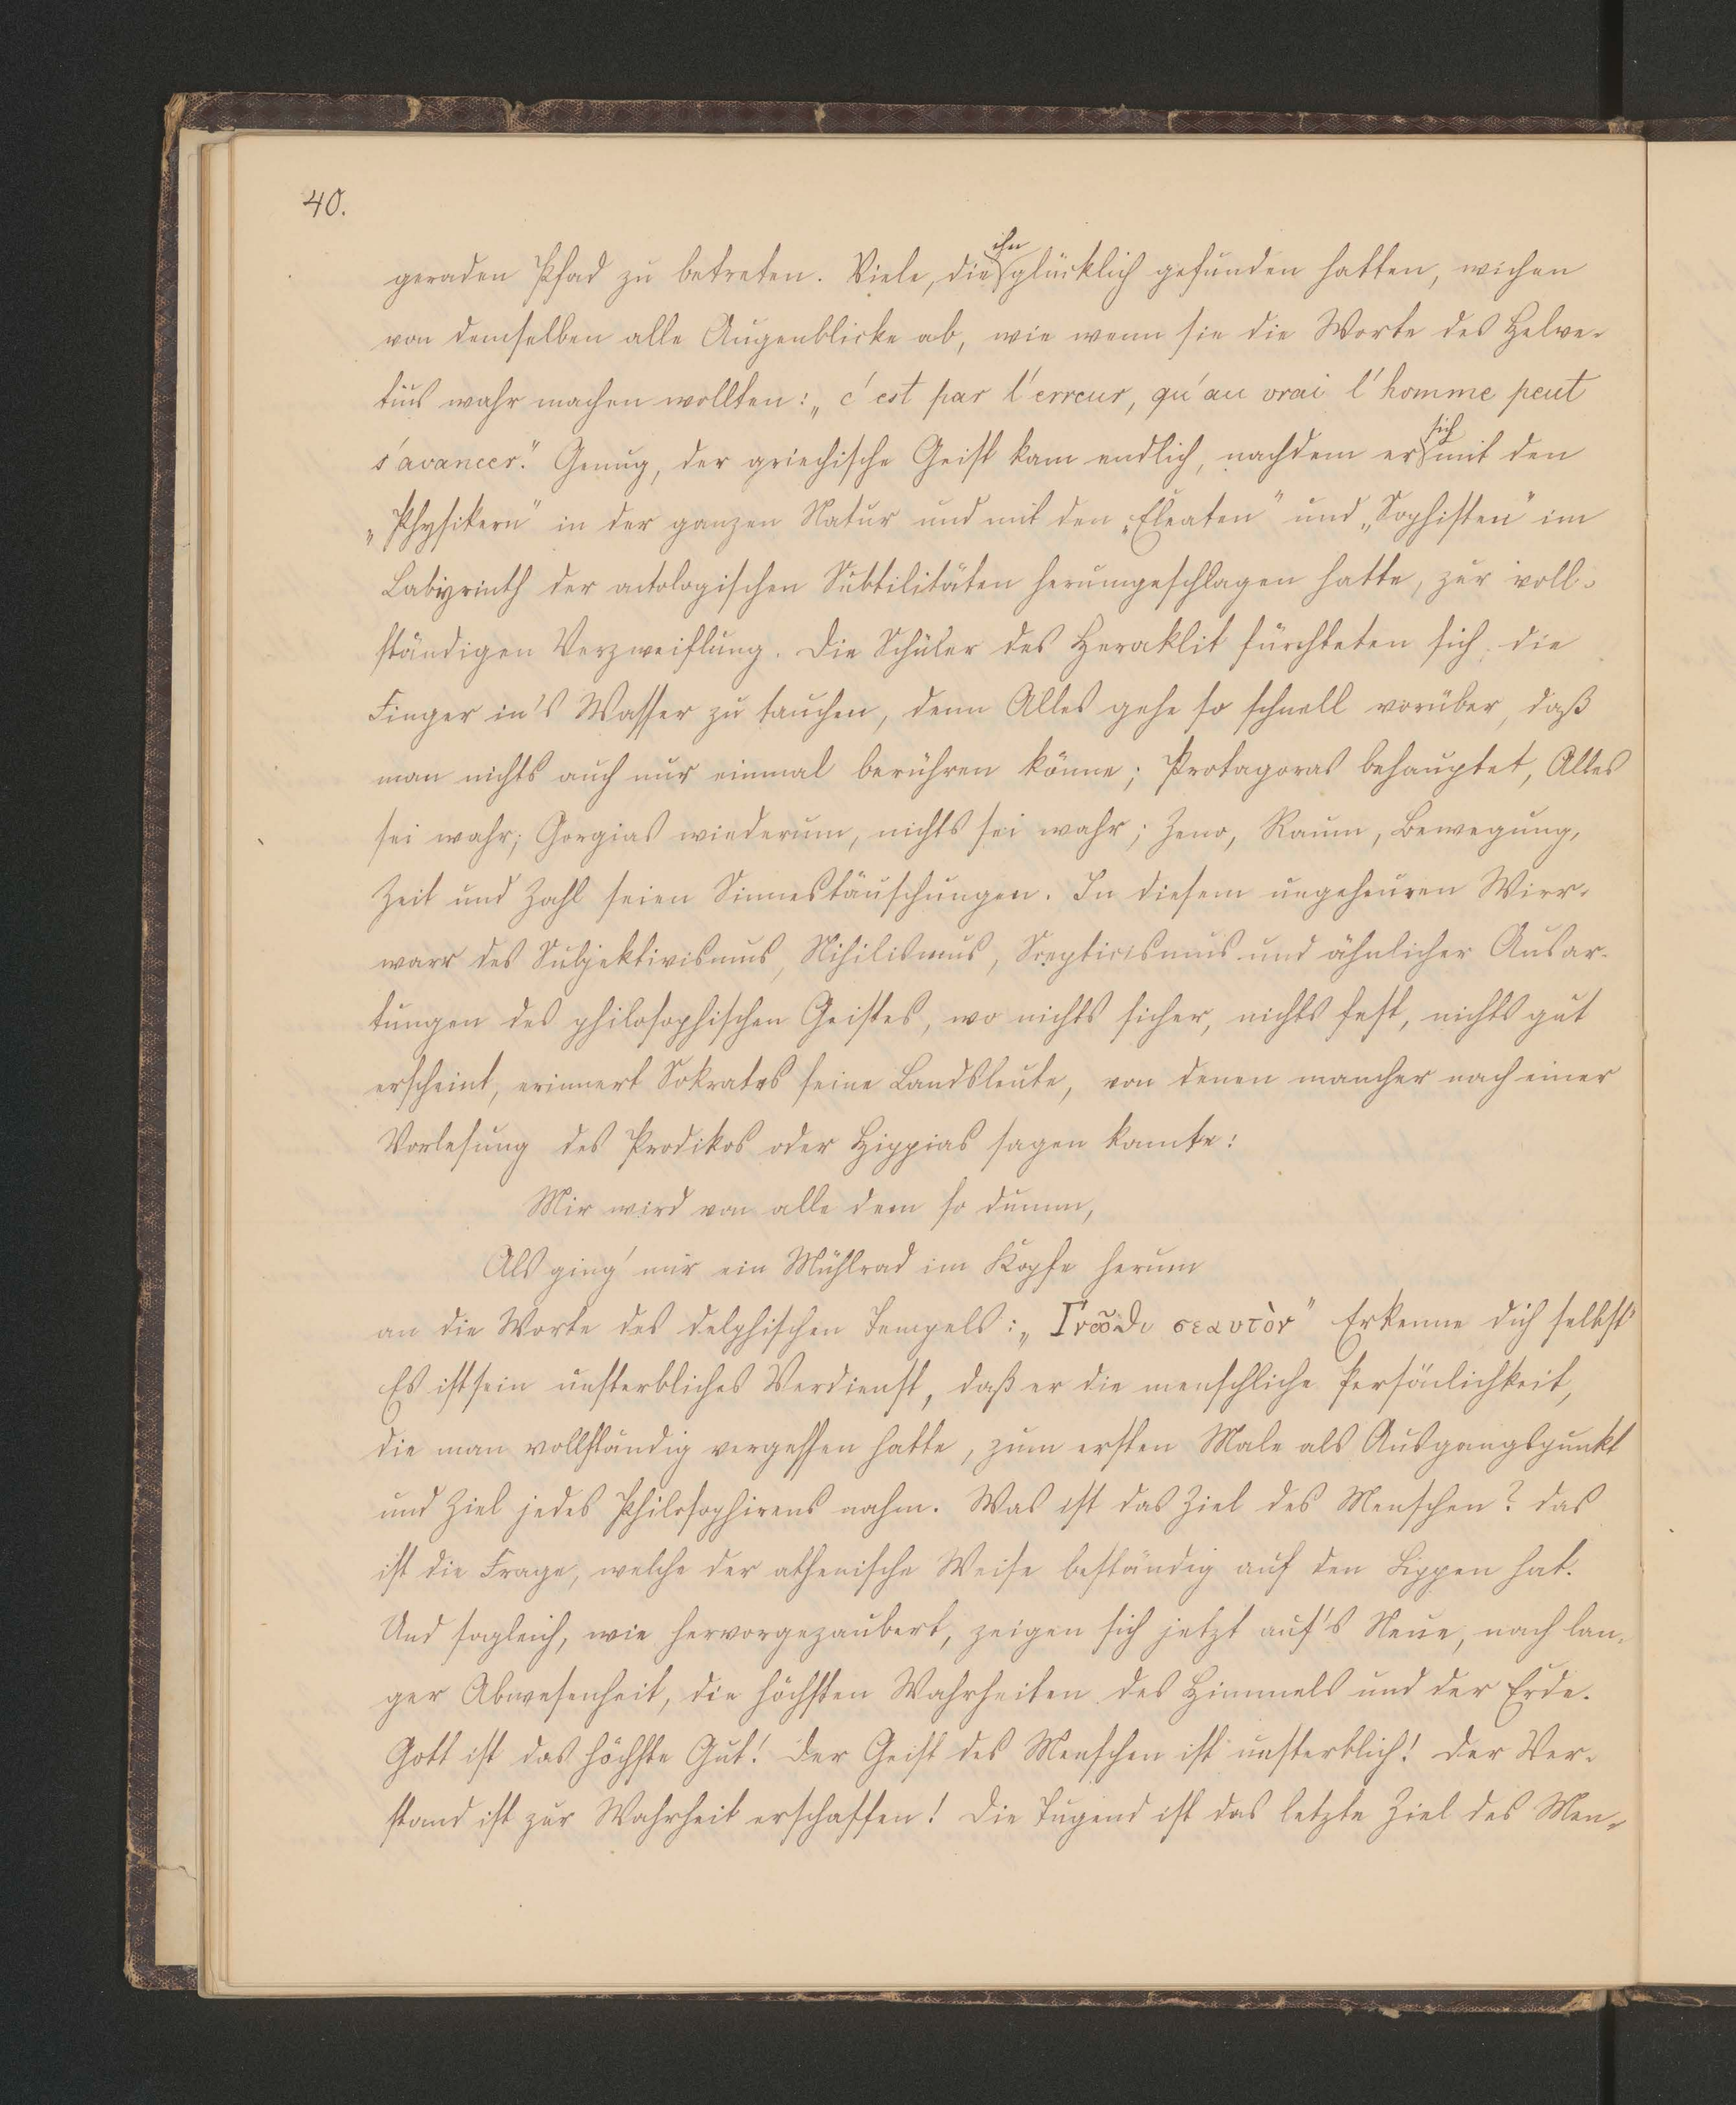 40.
geraden Pfad zu betreten. Viele, die ihn glücklich gefunden hatten, wichen
von demselben alle Augenblicke ab, wie wenn sie die Worte des Helve-
tius wahr machen wollten: „c'est par l'erreur, qu'au vrai l'homme peut
s'avancer." Genug, der griechische Geist kam endlich, nachdem er sich mit den
„Physikern" in der ganzen Natur und mit den „Eleaten" und „Sophisten" im
Labyrinth der ontologischen Subtilitäten herumgeschlagen hatte, zur voll-
ständigen Verzweiflung. Die Schüler des Heraklit fürchteten sich, die
Finger in's Wasser zu tauchen, denn Alles gehe so schnell vorüber, daß
man nichts auch nur einmal berühren könne; Protagoras behauptet, Alles
sei wahr; Gorgias wiederum, nichts sei wahr; Zeno, Raum, Bewegung,
Zeit und Zahl seien Sinnestäuschungen. In diesem ungeheuren Wirr-
warr des Subjektivismus, Nihilismus, Scepticismus und ähnlicher Ausar-
tungen des philosophischen Geistes, wo nichts sicher, nichts fest, nichts gut
erscheint, erinnert Sokrates seine Landsleute, von denen mancher nach einer
Vorlesung des Prodikos oder Hippias sagen konnte:
Mir wird von alle dem so dumm,
Als ging' mir ein Mühlrad im Kopfe herum
an die Worte des delphischen Tempels: „Γνῶθι σεαυτὸν" Erkenne dich selbst"
Es ist sein unsterbliches Verdienst, daß er die menschliche Persönlichkeit,
die man vollständig vergessen hatte, zum ersten Male als Ausgangspunkt
und Ziel jedes Philosophirens nahm. Was ist das Ziel des Menschen? das
ist die Frage, welche der athenische Weise beständig auf den Lippen hat.
Und sogleich, wie hervorgezaubert, zeigen sich jetzt auf's Neue, nach lan-
ger Abwesenheit, die höchsten Wahrheiten des Himmels und der Erde.
Gott ist das höchste Gut! Der Geist des Menschen ist unsterblich! Der Ver-
stand ist zur Wahrheit erschaffen! Die Tugend ist das letzte Ziel des Men-